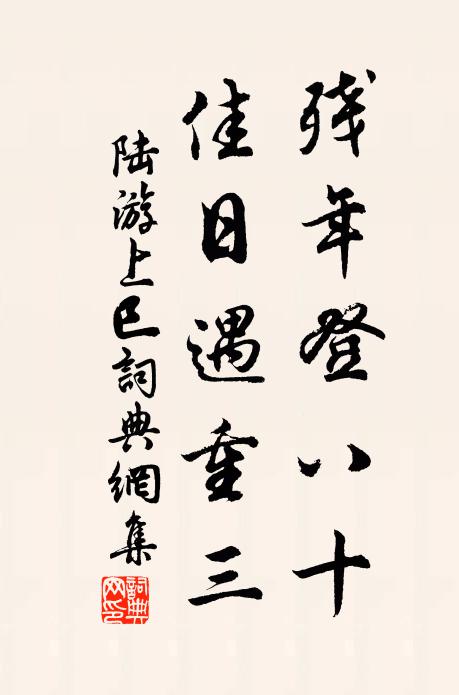 残年登八十
佳日遇重三
陆游上巳詞典網集
詞典网印